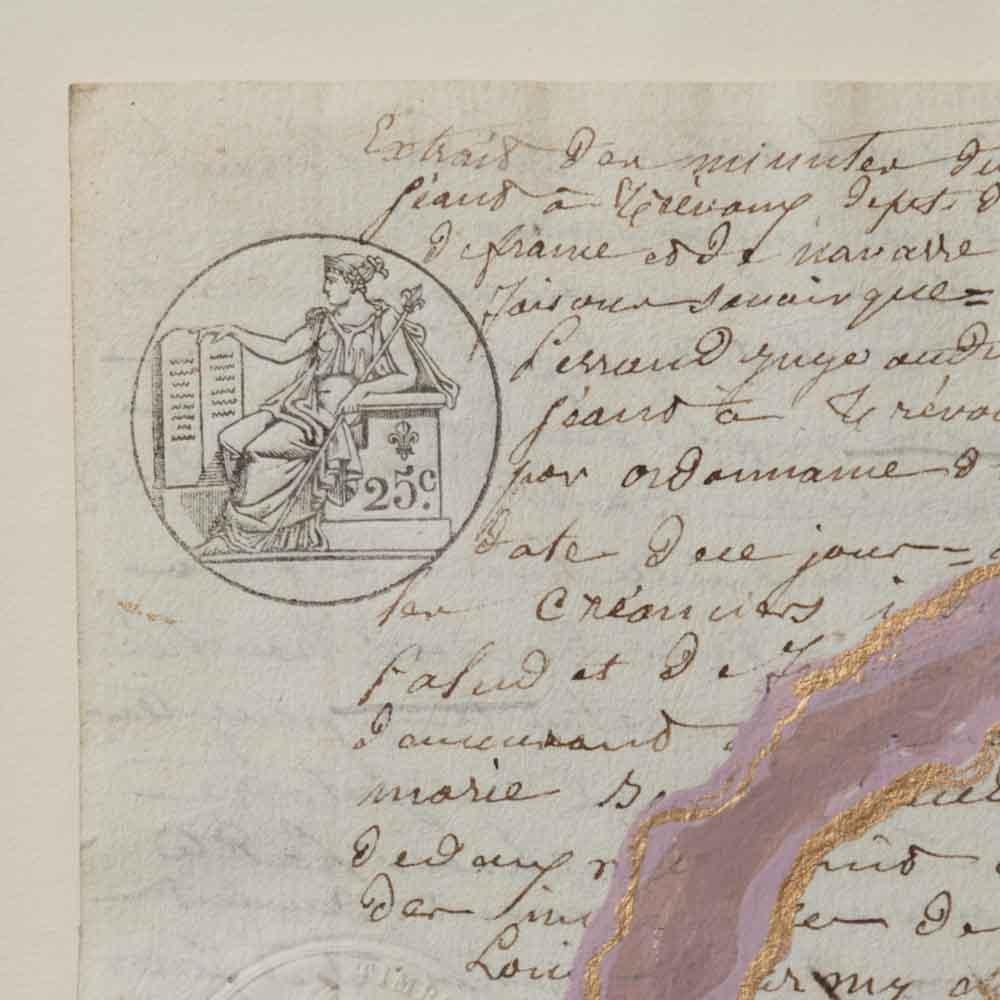 Extrait des minutes du
séant à Trévoux dept. d
25c
de france et de navarre
faisons savoir que=
Perraud juge au
séant à Trévo
par ordonnance d
date de ce jour=
les créanciers
Palud et De
demeurant
marie
Dedaux
Des de
Loui
TIMB